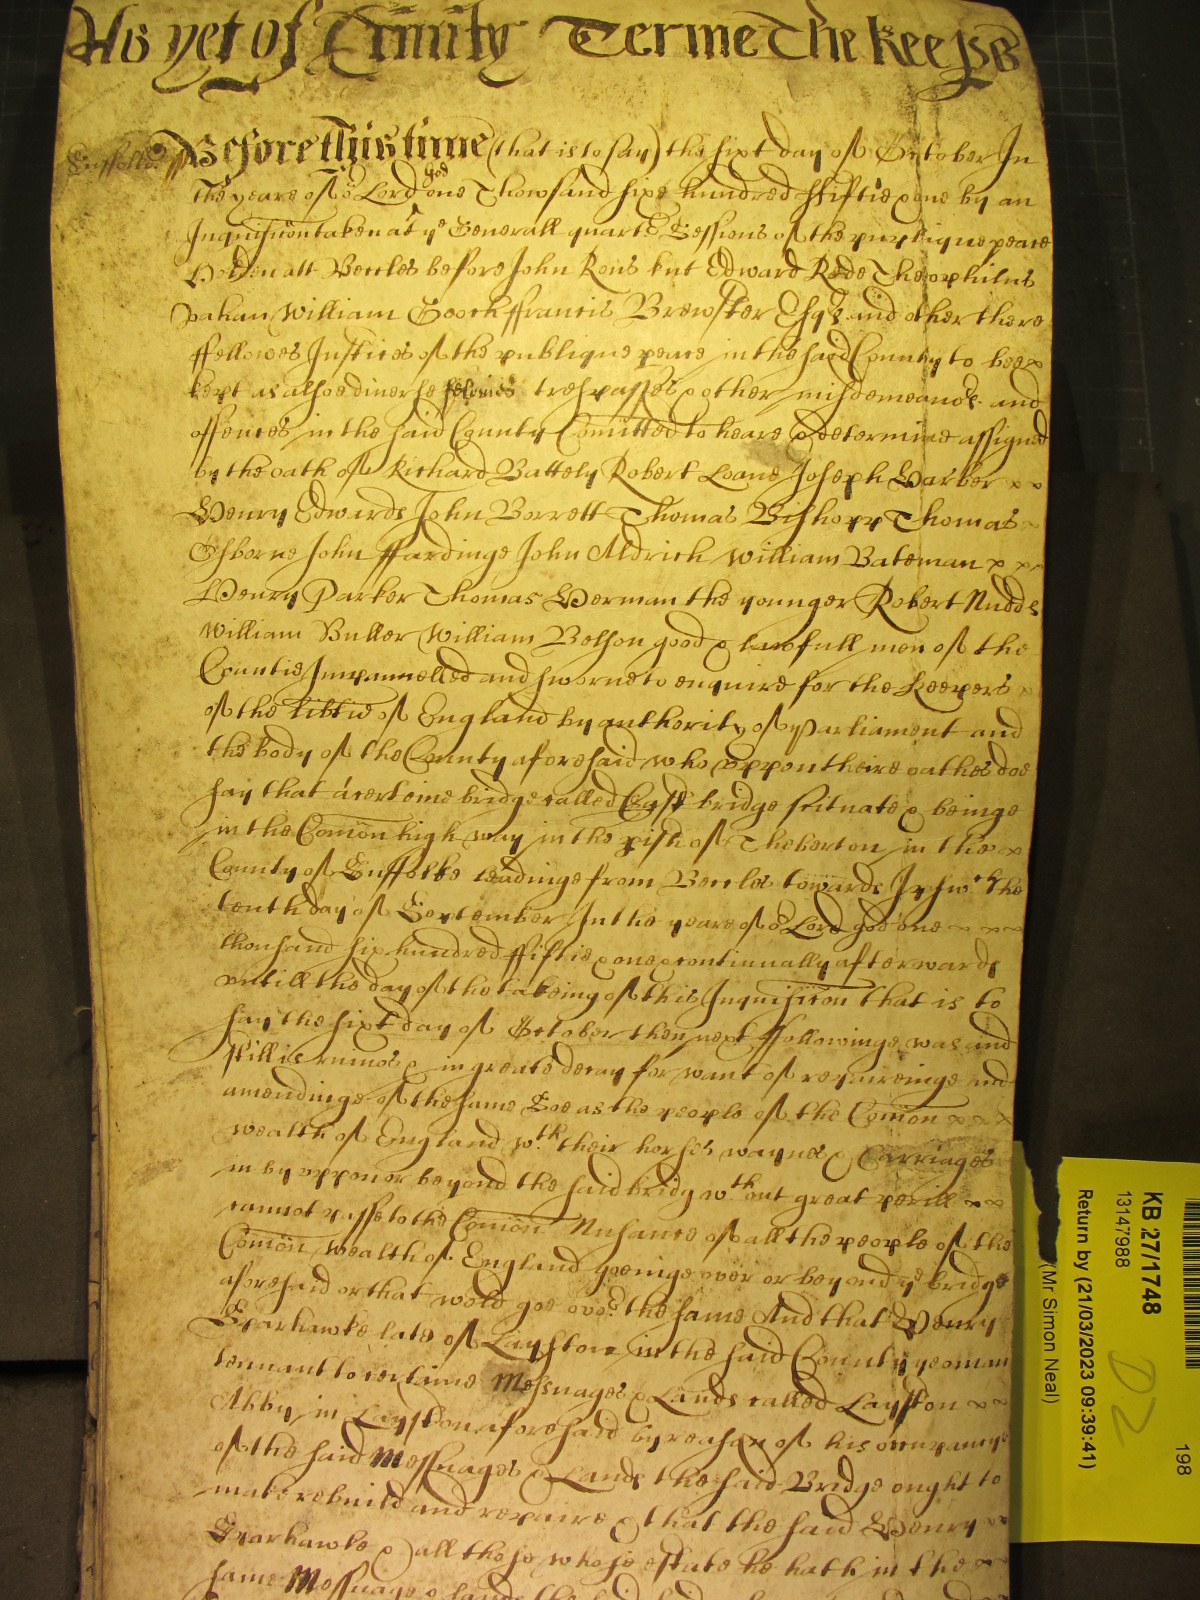 As yet of Trinity Terme The Keeps
Suffolke ss Before this time (that is to say) the sixt day of October In
the yeare of or Lord god one Thowsand sixe hundred ffiftie & one by an
Inquisicon taken at ye Generall quarter Sessions of the publique peace
Holden att Beccles before John Rous knt Edward Rede Theophilus
Vahan William Gooch ffrancis Brewster Esqrs and other there
ffellowes Justices of the publique peace in the said County to bee
kept as alsoe diuerse felonies trespasses & other misdemeanors and
offences in the said County Comitted to heare & determine assigned
by the oath of Richard Battely Robert Loane Joseph Barber
Henry Edwards John Borrett Thomas Bishopp Thomas
Osborne John ffardinge John Aldrich William Bateman
Henry Parker Thomas Herman the younger Robert Nudds
William Buller William Belson good & lawfull men of the
Countie Impannelled and sworne to enquire for the Keepers
of the libtie of England by authority of Parliament and
the body of the County aforesaid who vppon theire oathes doe
say that a certeine bridge called East bridge scituate & beinge
in the Comon high way in the pish of Theberton in the
County of Suffolke leadinge from Beccles towards Ipswch the
tenth day of September In the yeare of or Lord god one
thousand six hundred ffiftie & one & continually afterwards
vntill the day of the takeing of this Inquisicon that is to
say the sixt day of October then next ffollowinge was and
still is ruinos & in greate decay for want of repaireinge and
amendinge of the same Soe as the people of the Comon
wealth of England wth their horses waynes & Carriages
in by vppon or beyond the said bridg wthout great perill
cannot passe to the Comon Nusance of all the people of the
Comon wealth of England goeinge over or beyond ye bridge
aforesaid or that wold goe over the same And that Henry
Sparhawke late of Layston in the said County yeoman
tennant to certaine Messuages & Lands called Layston
Abby in Layston aforesaid by reason of his occupancye
of the said Messuages & Lands the said Bridge ought to
make rebuild and repaire & that the said Henry
Sparhawke & all those whose estate he hath in the
same Messuage & lands the said
KB 27/1748
13147988
Return by (21/03/2023 09:39:41)
(Mr Simon Neal)
D2
198